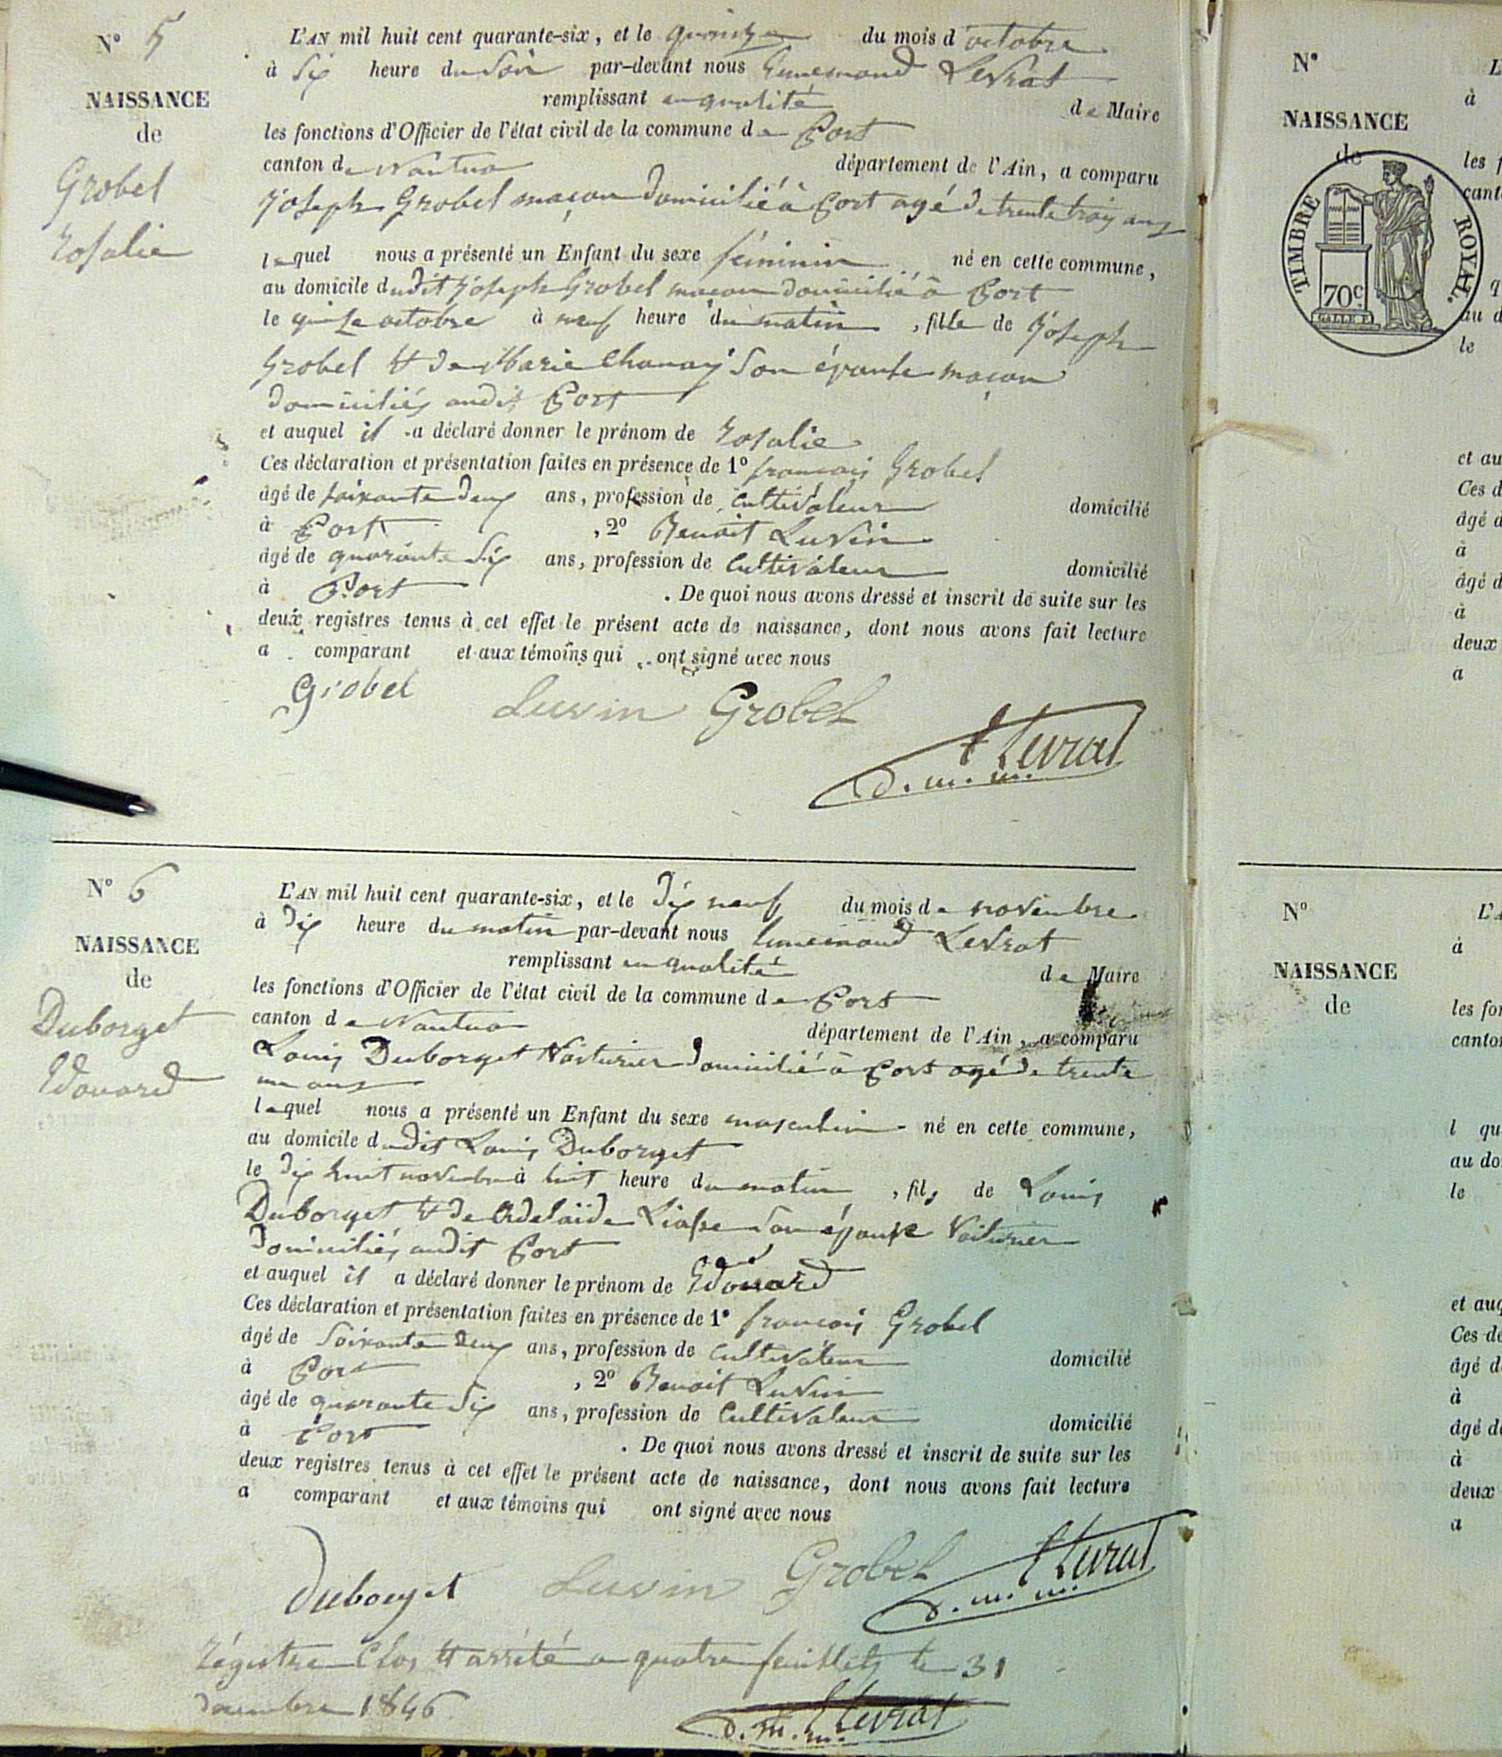 N° 5
NAISSANCE
de
Grobel
Rosalie
L'AN mil huit cent quarante-six, et le quinze du mois d'octobre
à six heure du soir par-devant nous Ennemond Levrat
remplissant en qualité de Maire
les fonctions d'Officier de l'état civil de la commune de Port
canton de Nantua département de l'Ain, a comparu
Joseph Grobel maçon domicilié à Port agé de trente trois ans
lequel nous a présenté un Enfant du sexe féminin né en cette commune,
au domicile dudit Joseph Grobel maçon domicilié à Port
le quinze octobre à neuf heure du matin, fille de Joseph
Grobel et de Marie Chanay son épouse maçon
domiciliés audit Port
et auquel il a déclaré donner le prénom de Rosalie
Ces déclaration et présentation faites en présence de 1° françois Grobel
âgé de soixante deux ans, profession de Cultivateur domicilié
à Port, 2° Benoit Luvin
âgé de quarante six ans, profession de Cultivateur domicilié
à Port. De quoi nous avons dressé et inscrit de suite sur les
deux registres tenus à cet effet le présent acte de naissance, dont nous avons fait lecture
a comparant et aux témoins qui ont signé avec nous
Grobel Luvin Grobel
Levrat
d. m. m.
N° 6
NAISSANCE
de
Duborget
Edouard
L'AN mil huit cent quarante-six, et le dix neuf du mois de novembre
à dix heure du matin par-devant nous Ennemond Levrat
remplissant en qualité de Maire
les fonctions d'Officier de l'état civil de la commune de Port
canton de Nantua département de l'Ain, a comparu
Louis Duborget Voiturier domicilié à Port agé de trente
un ans
lequel nous a présenté un Enfant du sexe masculin né en cette commune,
au domicile dudit Louis Duborget
le dix huit novembre à huit heure du matin, fils de Louis
Duborget et de Adelaïde son épouse Voiturier
domiciliés audit Port
et auquel il a déclaré donner le prénom de Edouard
Ces déclaration et présentation faites en présence de 1° françois Grobel
âgé de soixante deux ans, profession de Cultivateur domicilié
à Port, 2° Benoit Luvin
âgé de quarante six ans, profession de Cultivateur domicilié
à Port. De quoi nous avons dressé et inscrit de suite sur les
deux registres tenus à cet effet le présent acte de naissance, dont nous avons fait lecture
a comparant et aux témoins qui ont signé avec nous
Duborget Luvin Grobel Levrat
d. m. m.
Régistre Clos et arrêté a quatre feuillets le 31
décembre 1846
d. m. m. Levrat
N°
NAISSANCE
de
TIMBRE ROYAL.
70c
L
à
les f
cant
q
au d
le
et au
Ces d
âgé d
à
âgé d
à
deux
a
N°
NAISSANCE
de
L'A
à
les fon
canton
l qu
au do
le
et auq
Ces dé
âgé d
à
âgé de
à
deux
a